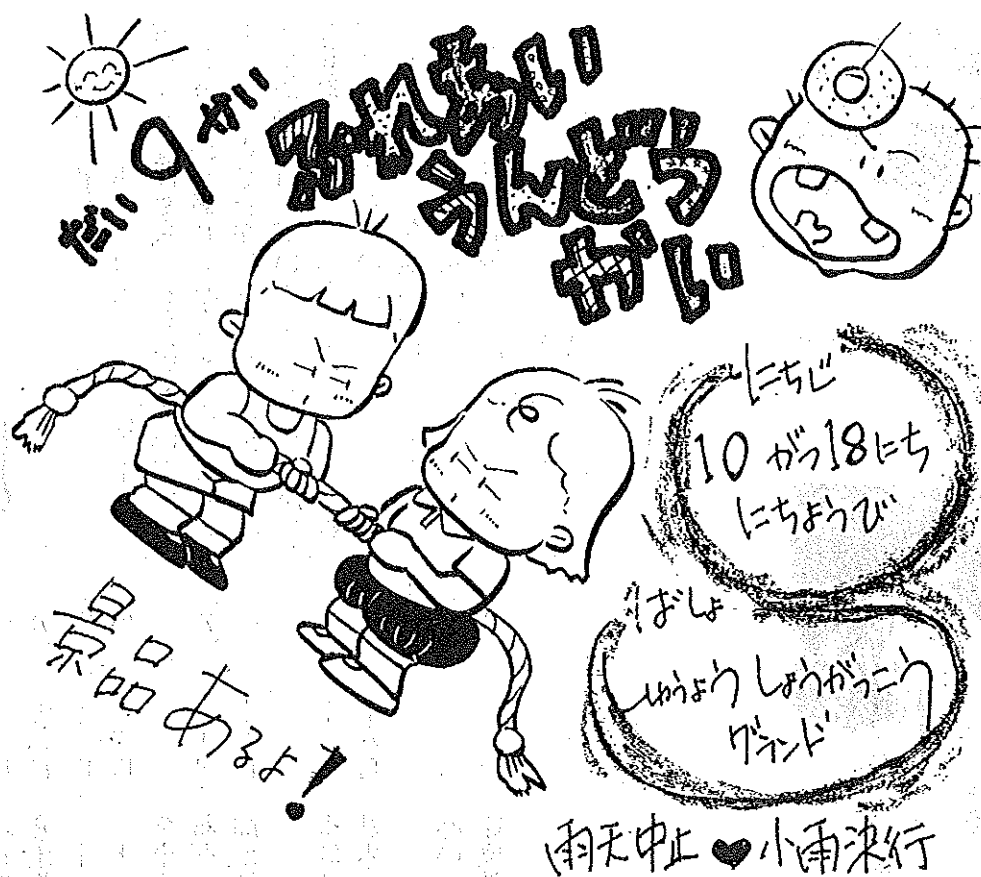 だい9かい
ふれあい
うんどう
かい
にちじ
10がつ18にち
にちようび
ばしょ
しゅうようしょうがっこう
グランド
景品あるよ!
雨天中止♥小雨決行